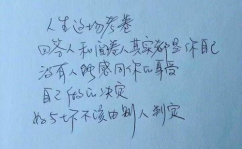 人生这场考卷
回答人和阅卷人其实都是你自己
没有人能感同你的耳
自己做的决定
好与坏不该由别人判定